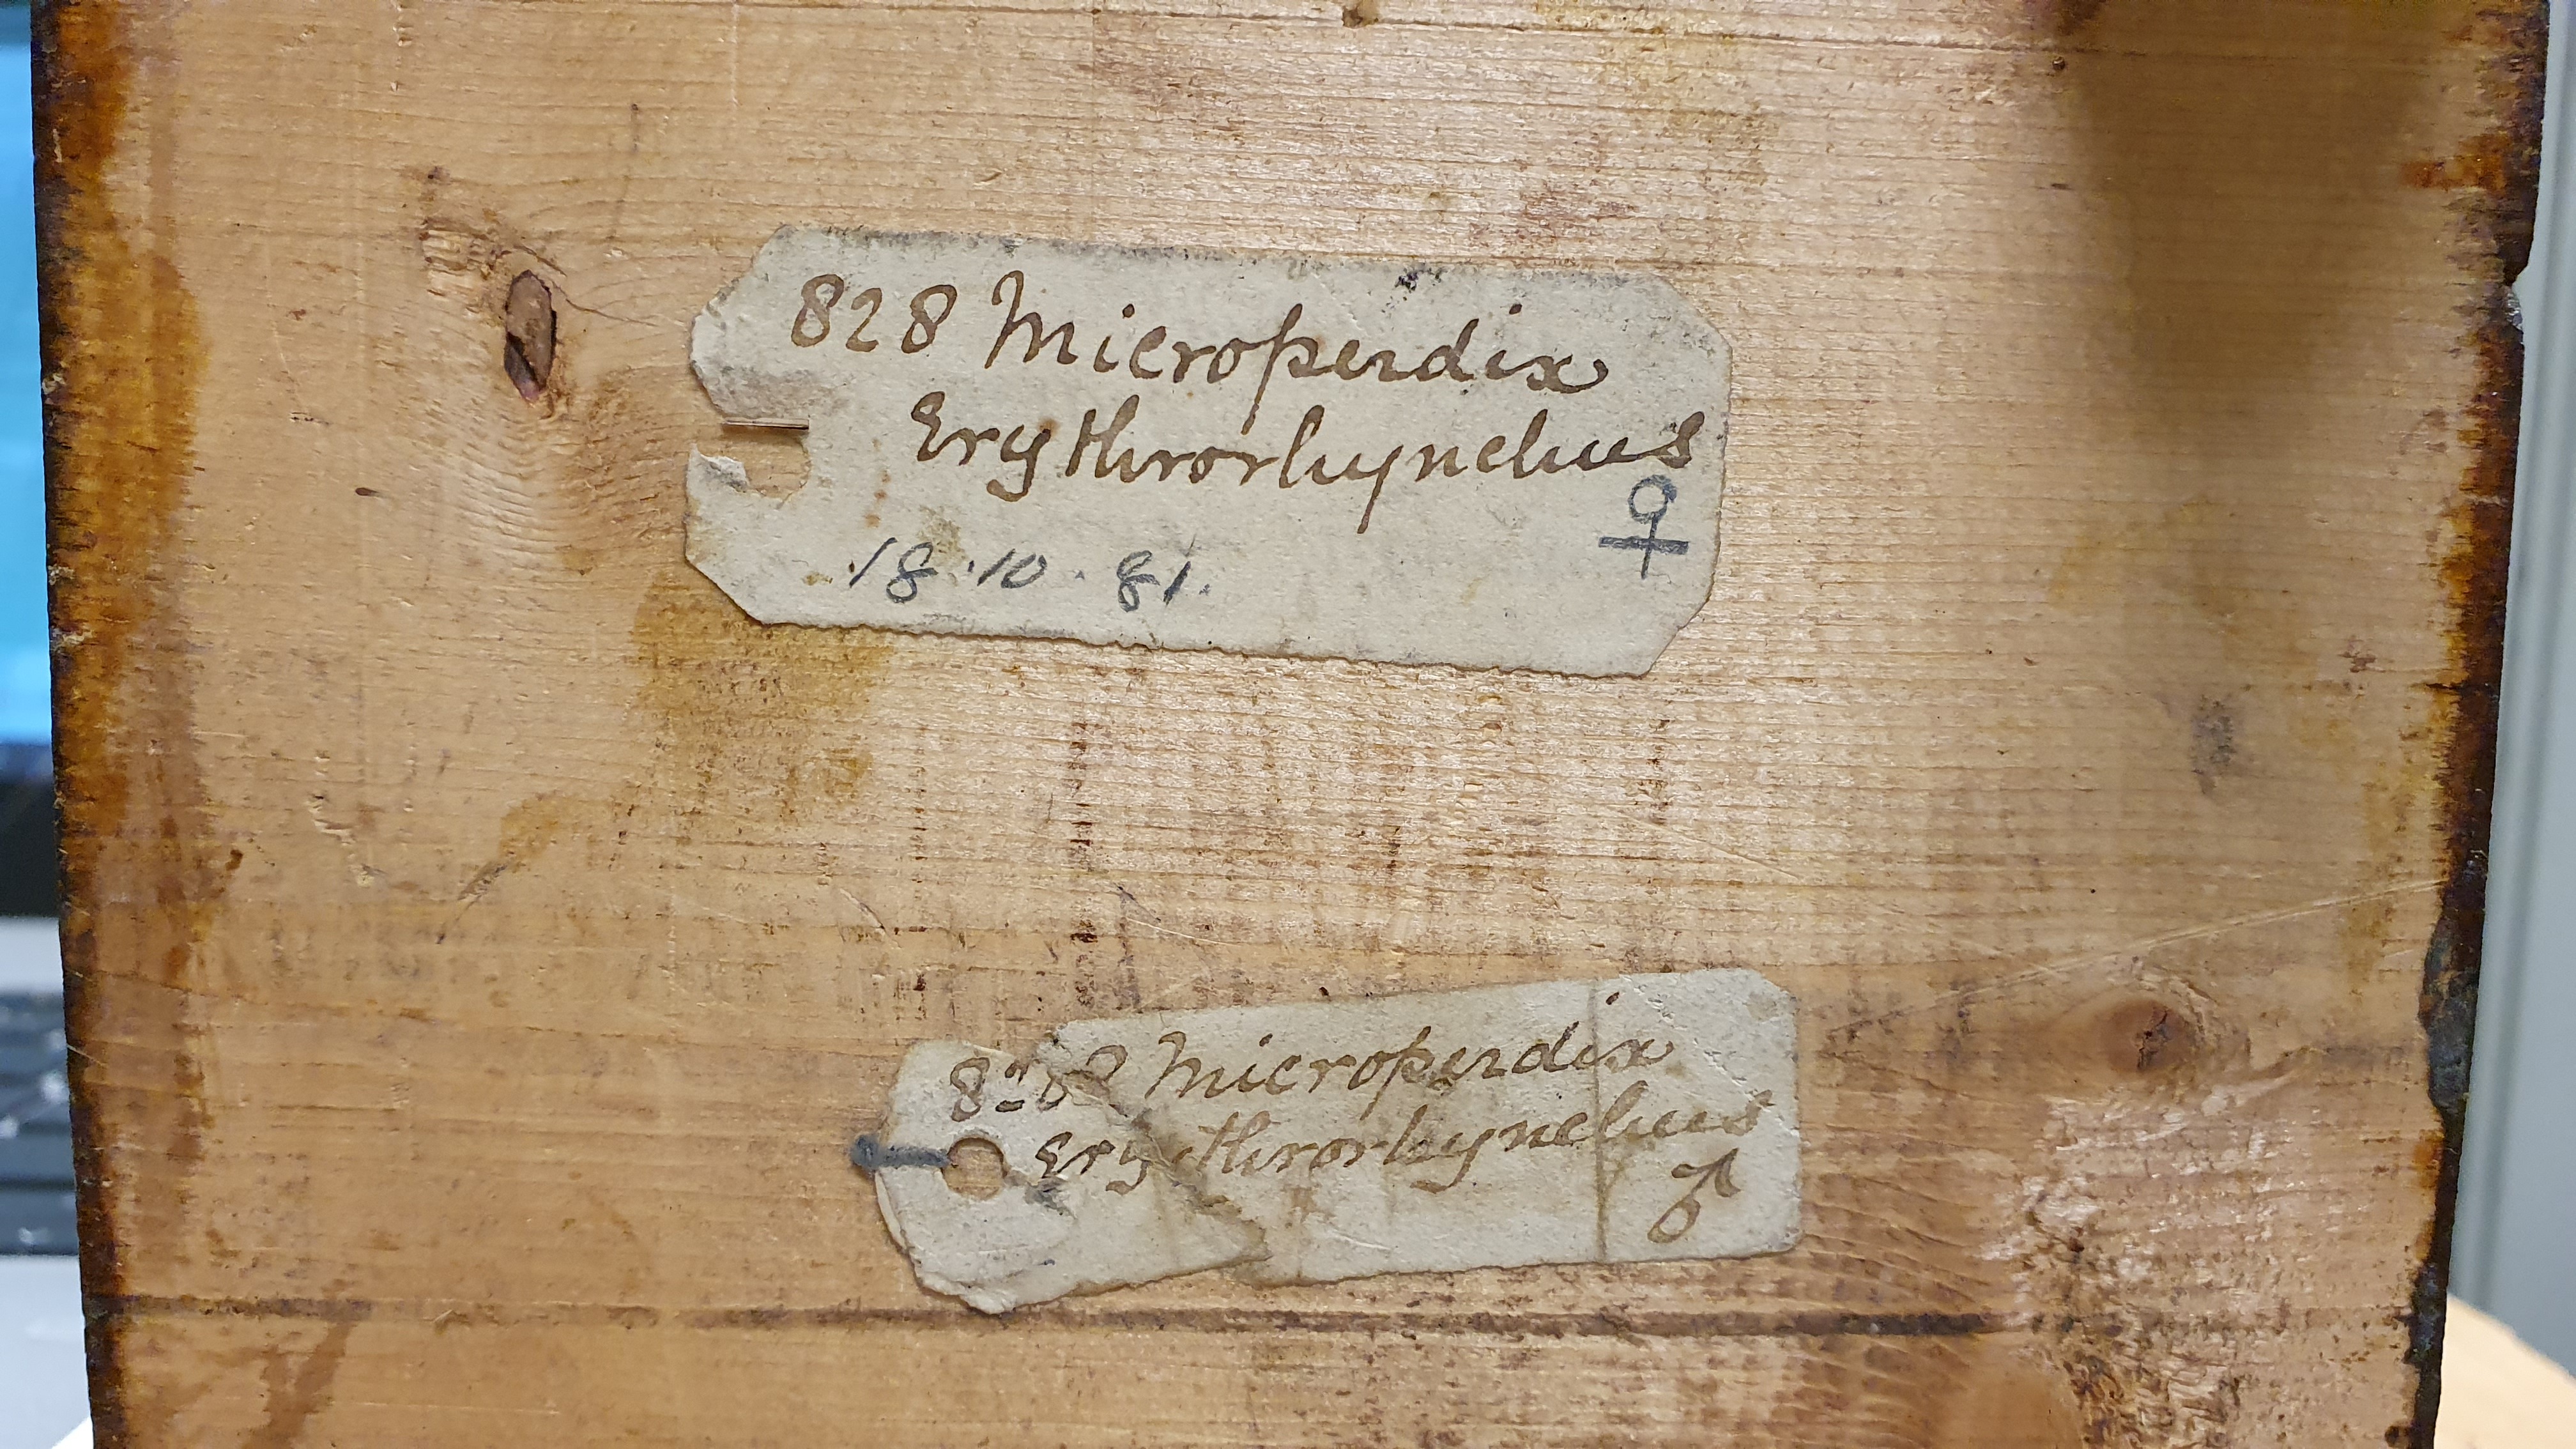 828 Microperdix
Erythrorhynchus
♀
18.10.81.
828 Microperdix
Erythrorhynchus
♂